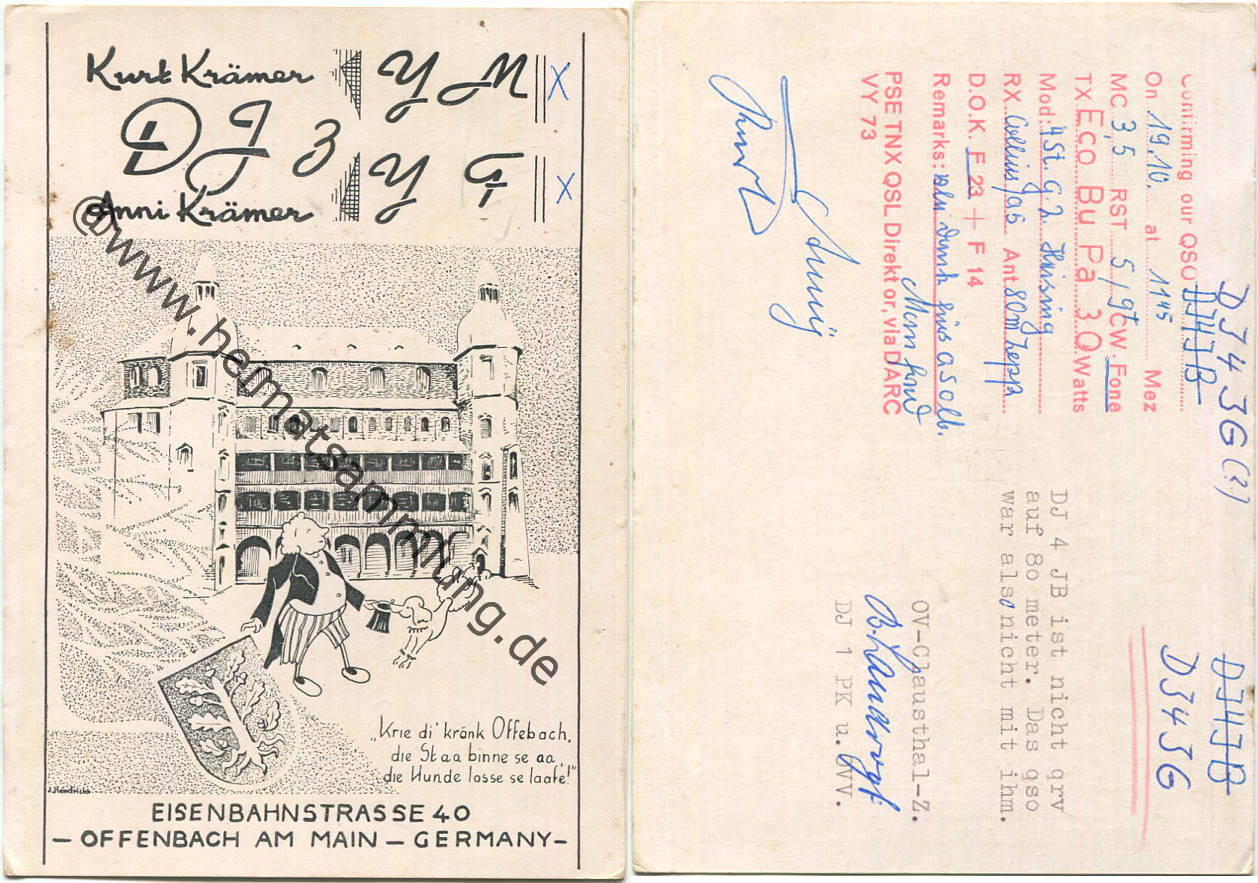 Kurt Krämer YM X
DJ3
Anni Krämer YG X
@www.heimatsammlung.de
„Krie di' kränk Offebach,
die Staa binne se aa,
die Hunde losse se laafe!"
J. Hendricks
EISENBAHNSTRASSE 40
— OFFENBACH AM MAIN — GERMANY —
DJ4JB
DJ43G (?)
DJ4JB
DJ43G
Confirming our QSO
On 19.10. at 1145 Mez
MC 3,5 RST 5/9t CW. Fone
TX Eco Bu Pa 30 Watts
Mod: 4 St. G.2 Heising
RX Collins/as Ant 80m Zepp
D.O.K F 23 + F 14
Remarks:
PSE TNX QSL Direkt or, via DARC
VY 73
Kurt
DJ 4 JB ist nicht qrv
auf 80 meter. Das qso
war also nicht mit ihm.
OV-Clausthal-Z.
DJ 1 PK u. OVV.